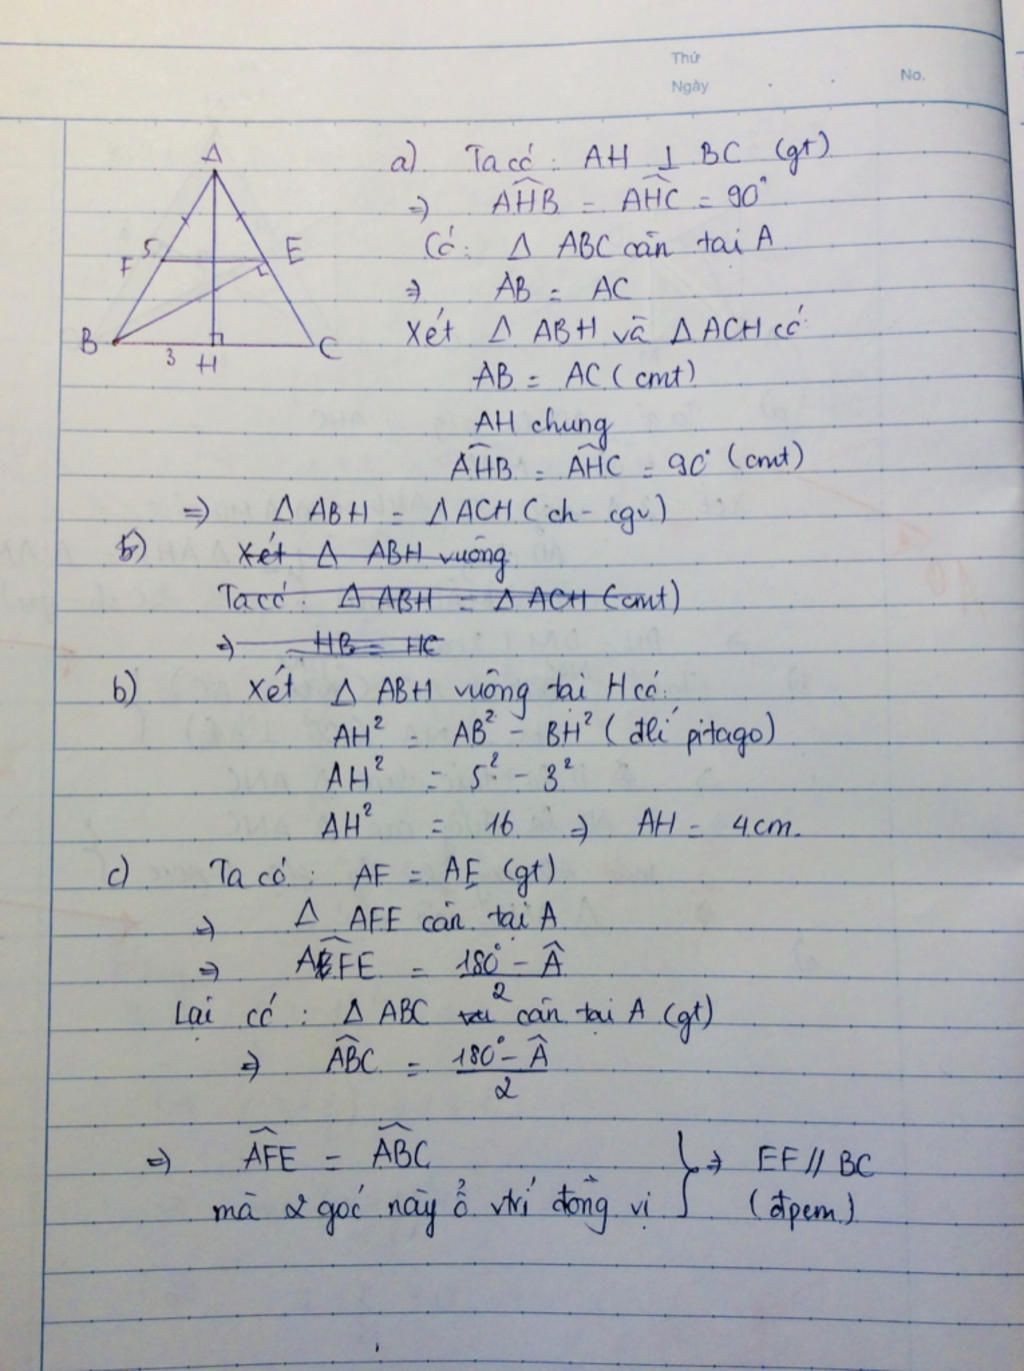 Thứ
Ngày . . No.
A
5
F E
B 3 H C
a) Ta có: AH ⊥ BC (gt)
=> AHB = AHC = 90°
Có: Δ ABC cân tại A
=> AB = AC
Xét Δ ABH và Δ ACH có
AB = AC (cmt)
AH chung
AHB = AHC = 90° (cmt)
=> Δ ABH = Δ ACH (ch - cgv)
b) Xét Δ ABH vuông
Ta có: Δ ABH = Δ ACH (cmt)
=> HB = HC
b) Xét Δ ABH vuông tại H có:
AH² = AB² - BH² (đlí pitago)
AH² = 5² - 3²
AH² = 16 => AH = 4cm.
c) Ta có: AF = AE (gt)
=> Δ AFE cân tại A
=> AFE = 180° - Â / 2
Lại có: Δ ABC cân tại A (gt)
=> ABC = 180° - Â / 2
=> AFE = ABC } => EF // BC
mà 2 góc này ở vtrí đồng vị (đpcm)